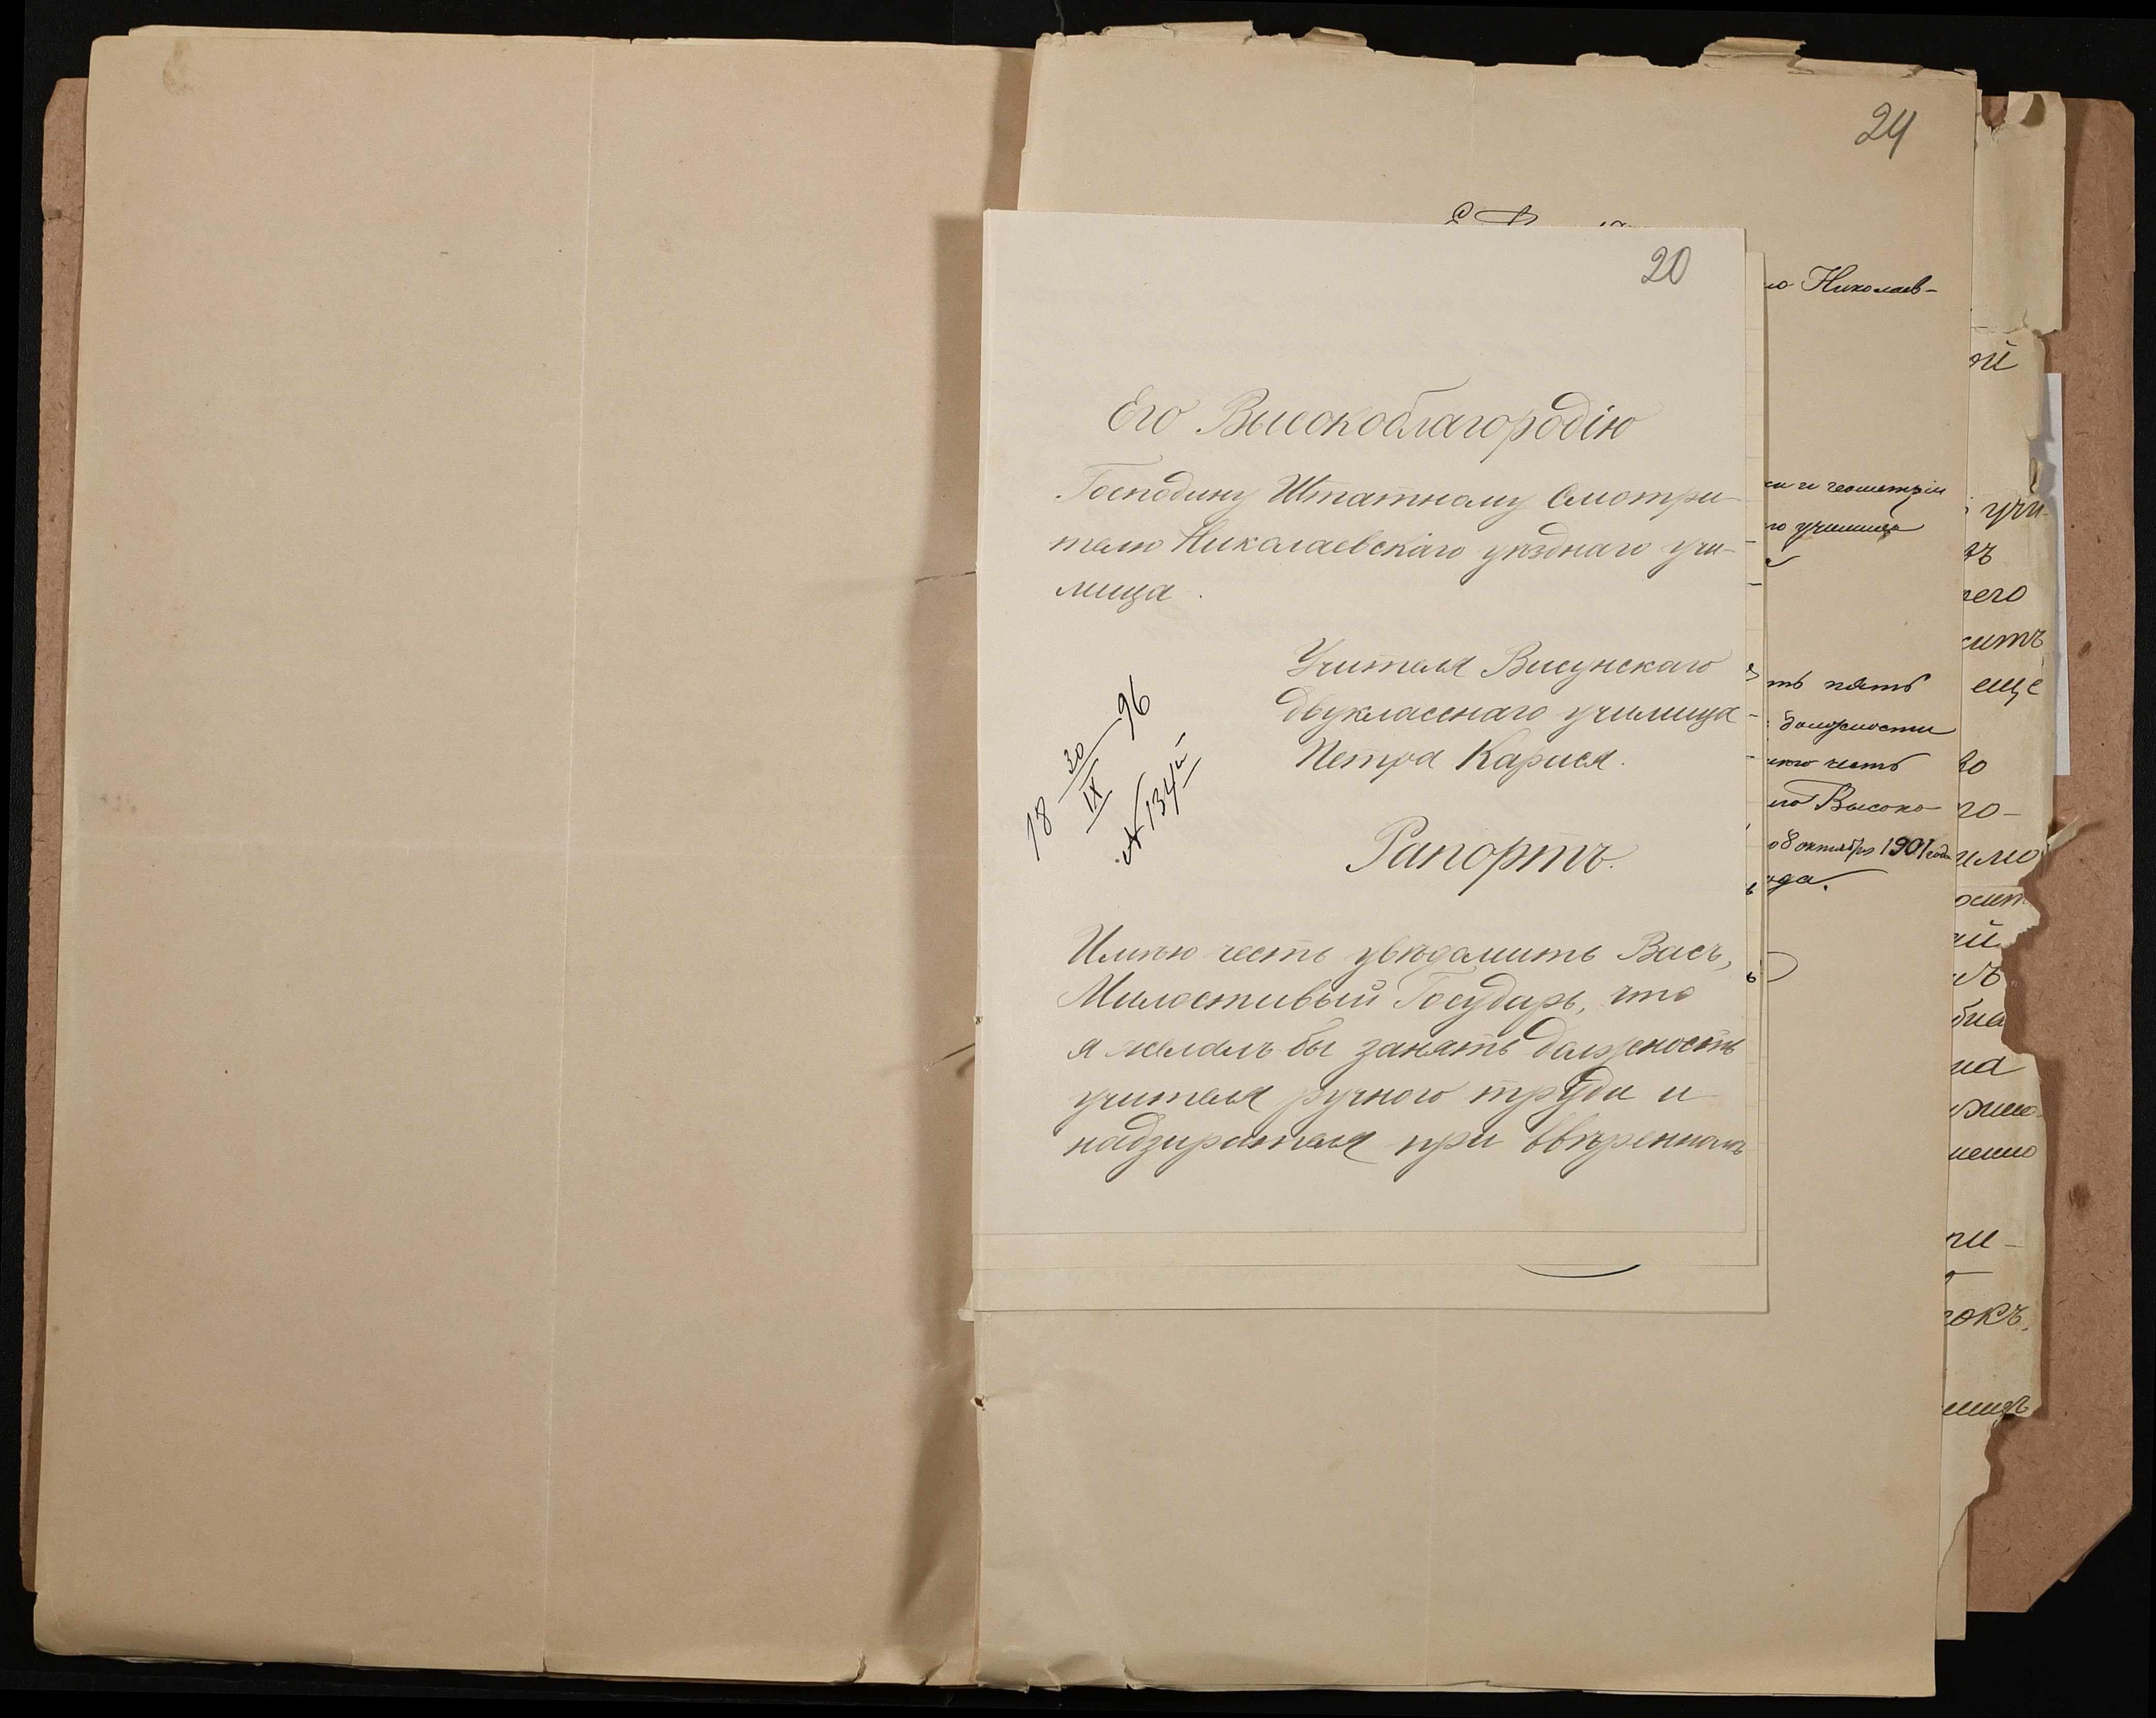 24
20
Его Высокоблагородію
Господину Штатному Смотри-
телю Николаевскаго уѣзднаго учи-
лища.
Учителя Висунскаго
двукласснаго училища
Петра Карися.
18 30/IX 96
№ 134
Рапортъ.
Имѣю честь увѣдомить Васъ,
Милостивый Государь, что
я желалъ бы занять должность
учителя ручного труда и
надзирателя при ввѣренномъ
Николаев-
и геометріи
училища
пять
должности
честь
Высоко-
8 октября 1901 года
еще